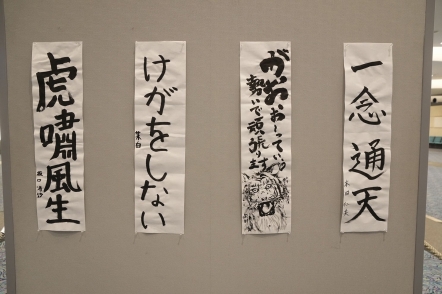 一念通天
がおおーっていう
勢いで頑張ります
けがをしない
葉白
虎嘯風生